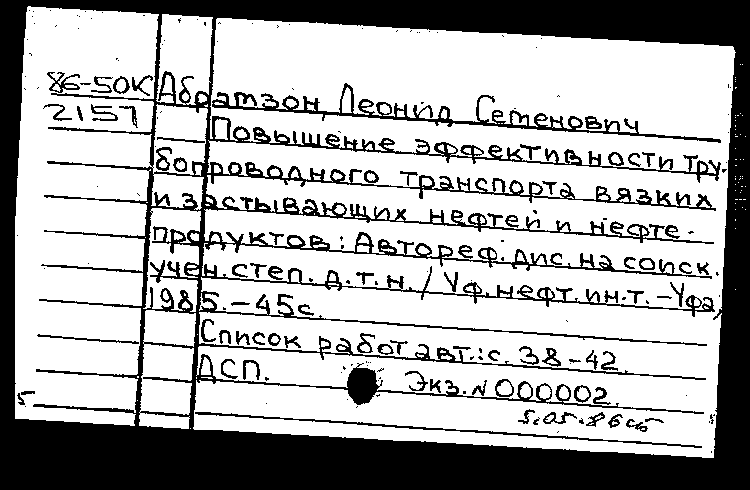 86-50К Абрамзон, Леонид Семенович
2157
Повышение эффективности тру-
бопроводного транспорта вязких
и застывающих нефтей и нефте-
продуктов: Автореф. дис. на соиск.
учен. степ. д.т.н. / Уф. нефт. ин-т. - Уфа,
1985. - 45с.
Список работ авт.: с. 38-42.
ДСП. Экз. N 000002.
5.05.86
5